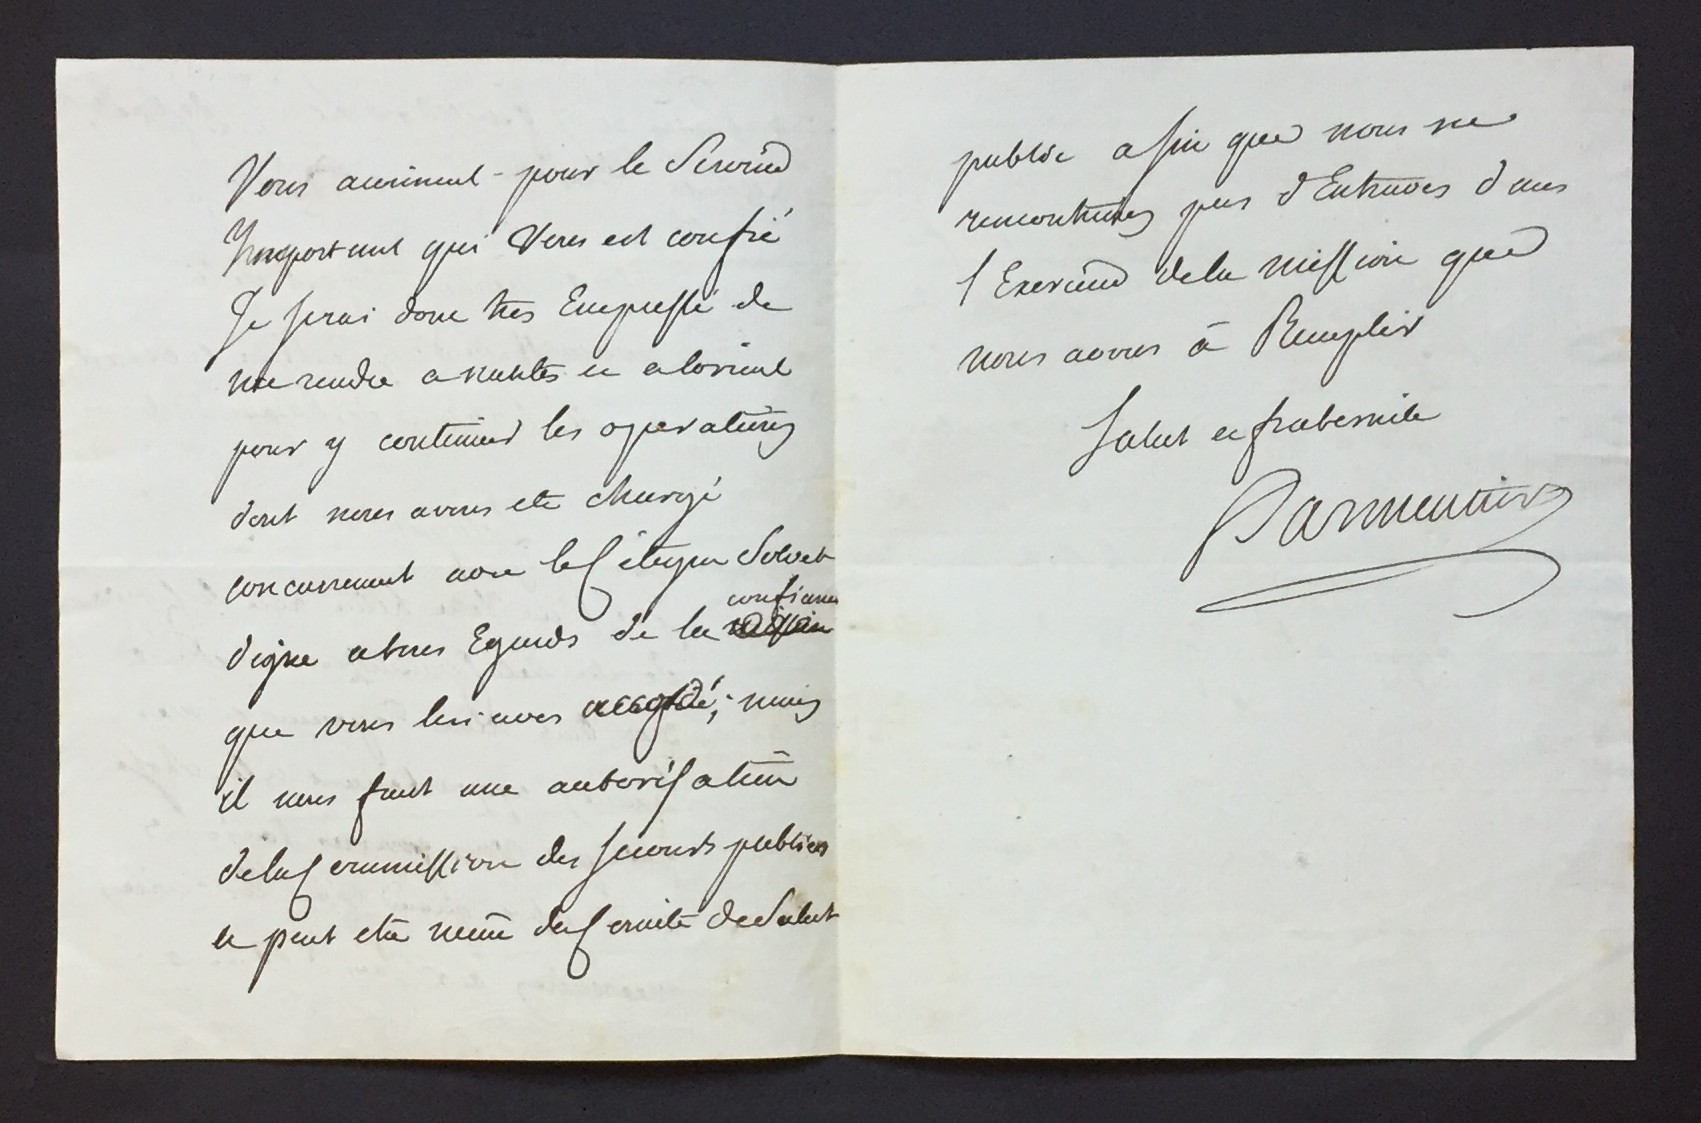 Vous animent - pour le Service
Important qui Vous est confié
Je serai donc tres Empressé de
me rendre a nantes et a lorient
pour y continuer les operations
dont nous avons ete chargé
concurrement avec le Citoyen Solvet
confiance
digne a tous Egards de la
que vous lui aves accordé; mais
il nous faut une autorisation
de la Commission des secours publics
et peut etre meme du Comité de Salut
public afin que nous ne
rencontrions pas d'Entraves dans
l'Exercice de la mission que
nous avons à Remplir
Salut et fraternité
Parmentier